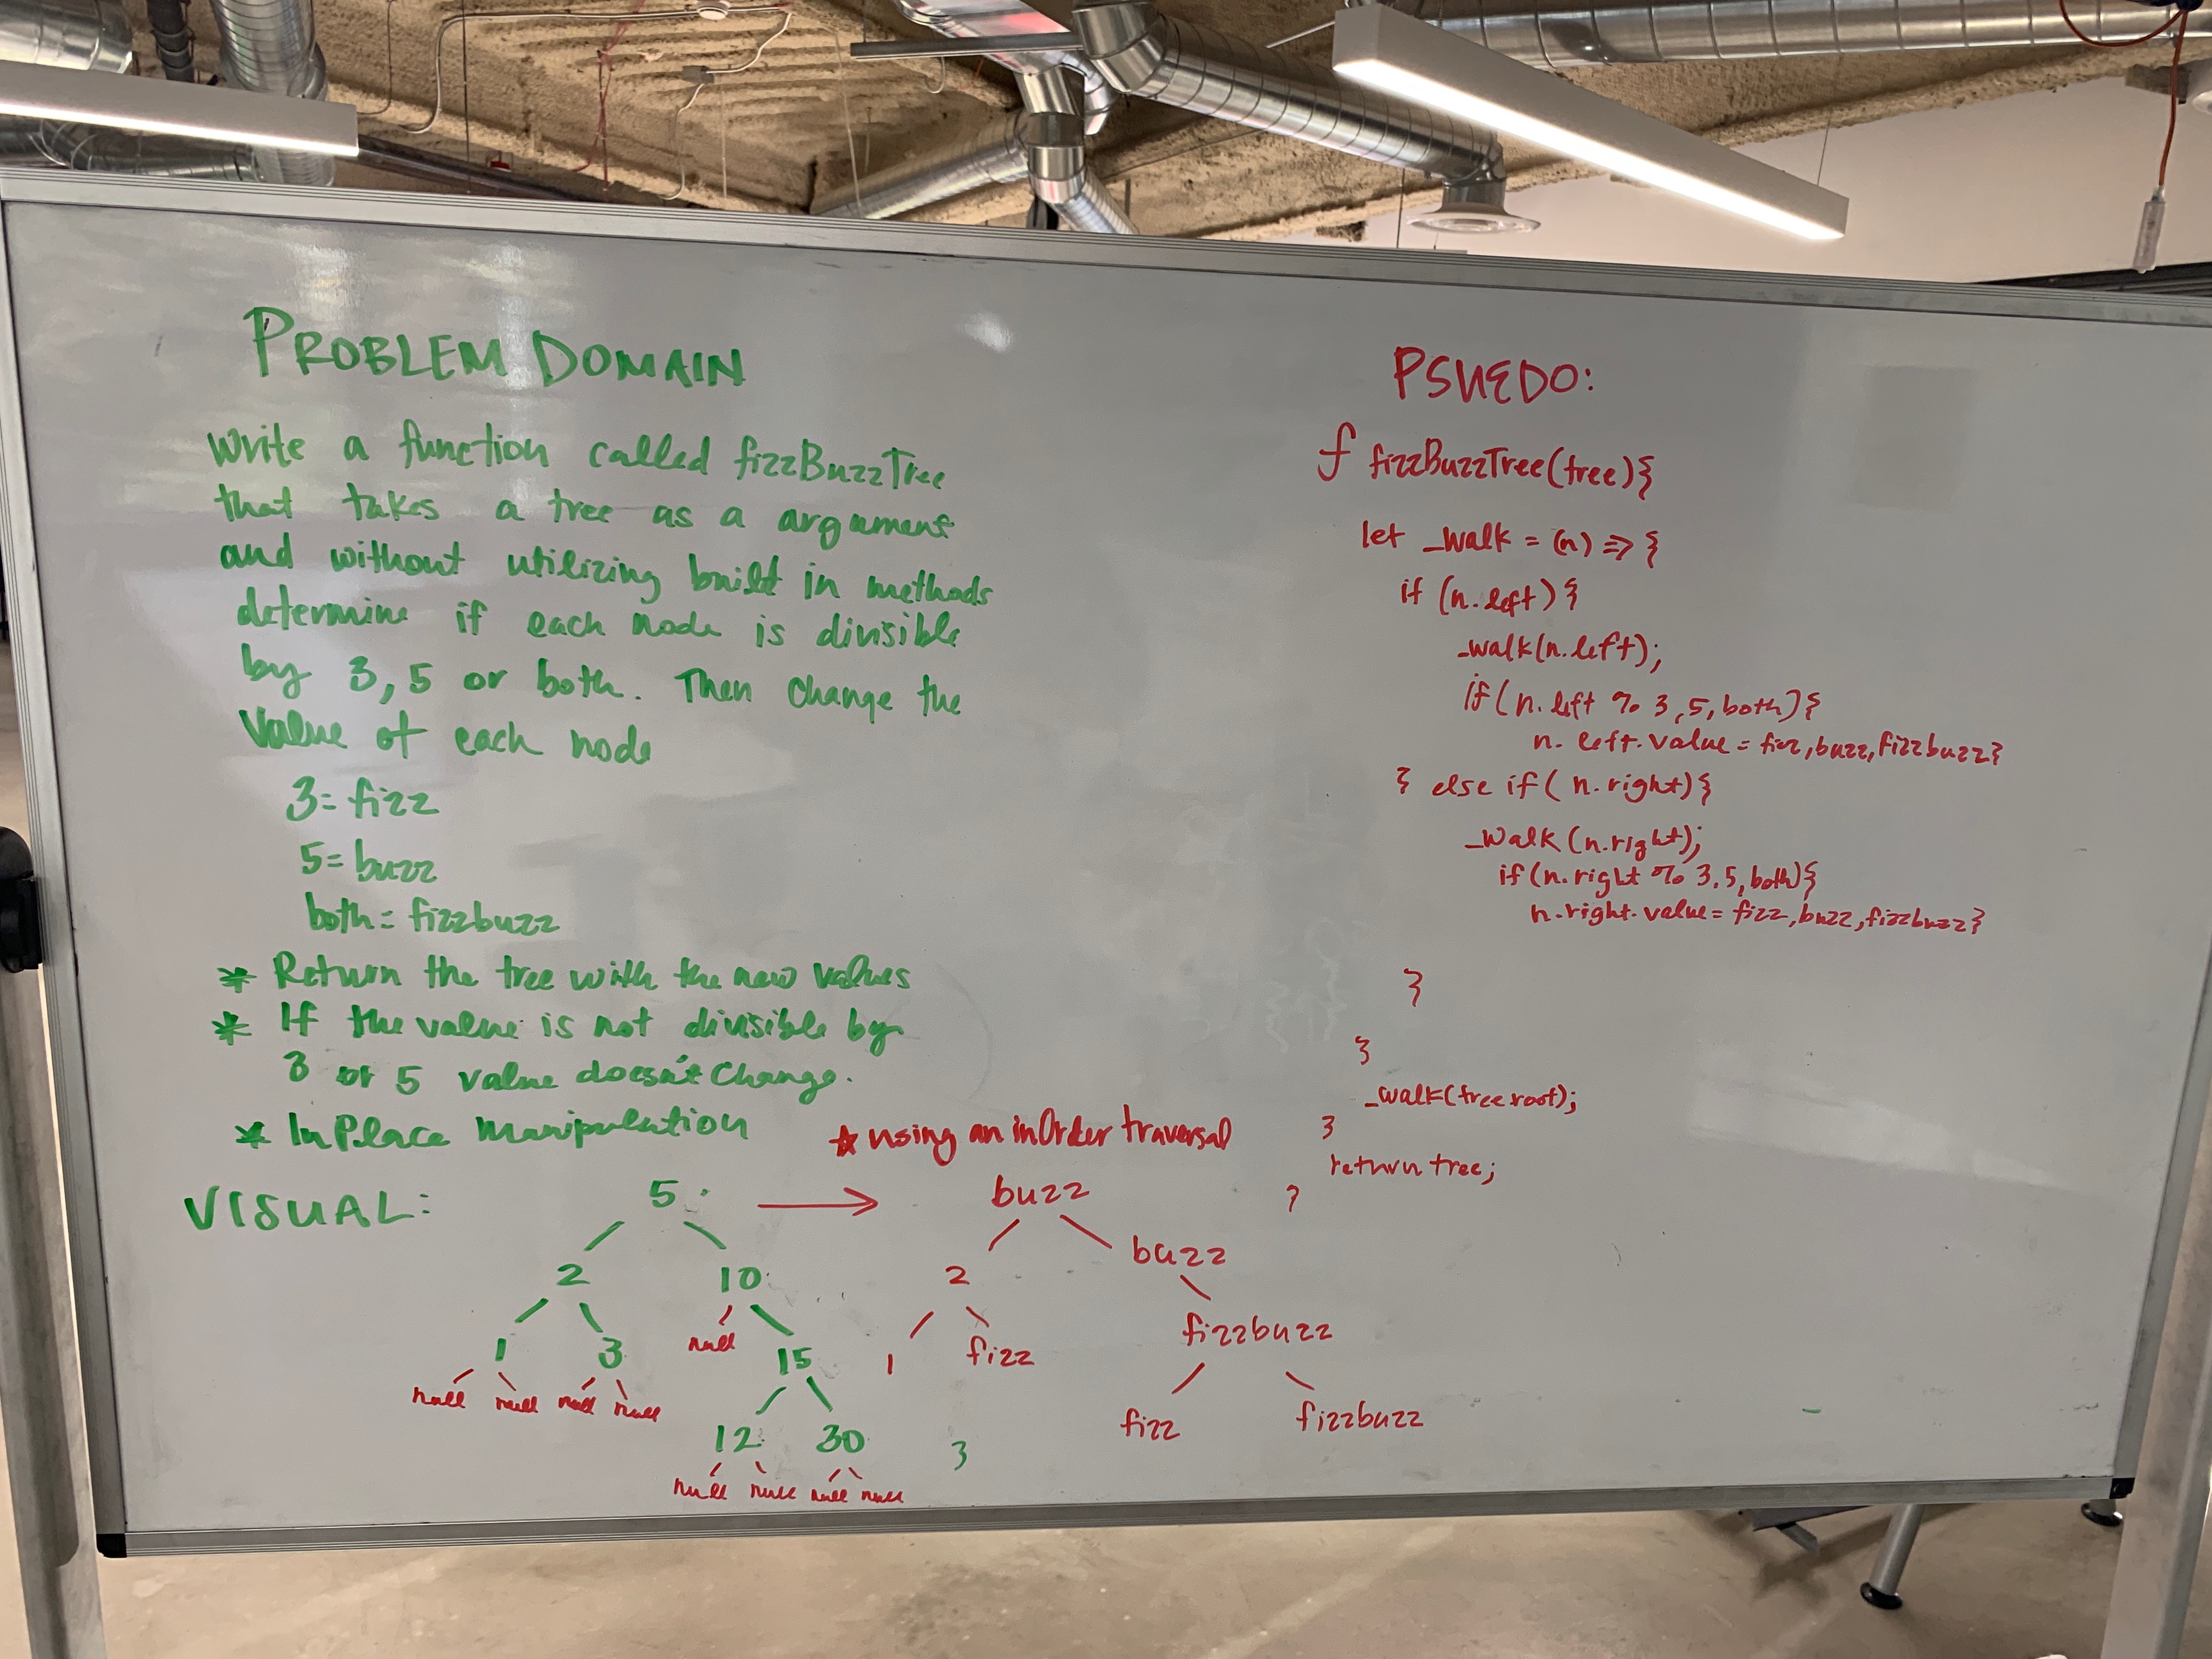 PROBLEM DOMAIN
Write a function called fizzBuzzTree
that takes a tree as a argument
and without utilizing built in methods
determine if each node is divisible
by 3, 5 or both. Then change the
value of each node
3 = fizz
5 = buzz
both = fizzbuzz
* Return the tree with the new values
* If the value is not divisible by
3 or 5 value doesn't change.
* In Place Manipulation
☆ using an inOrder traversal
VISUAL:
5 → buzz
2 10
1 3 null 15
null null null null
12 30
null null null null
3
2 buzz
1 fizz fizzbuzz
fizz fizzbuzz
PSUEDO:
f fizzBuzzTree(tree){
let _walk = (n) => {
if (n.left) {
_walk(n.left);
if (n.left % 3,5,both){
n.left.value = fizz,buzz,fizzbuzz}
} else if (n.right){
_walk(n.right);
if(n.right % 3,5,both){
n.right.value = fizz,buzz,fizzbuzz}
}
}
_walk(tree.root);
}
return tree;
}